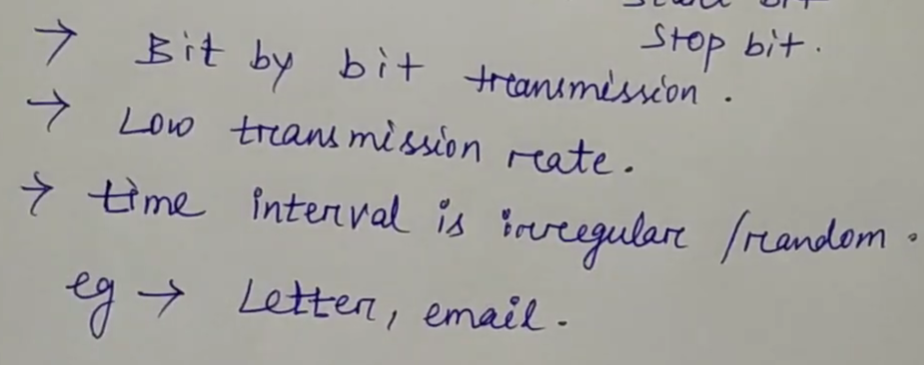 Stop bit.
→ Bit by bit transmission.
→ Low transmission rate.
→ time interval is irregular / random.
eg → Letter, email.